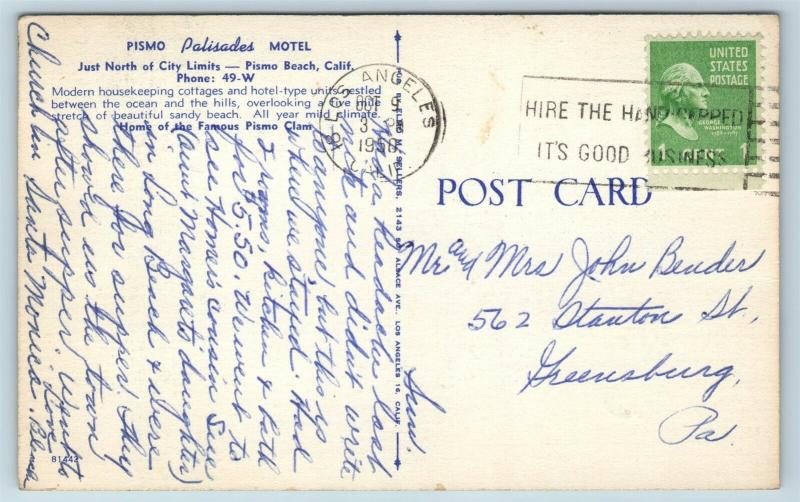 PISMO Palisades MOTEL
Just North of City Limits — Pismo Beach, Calif.
Phone: 49-W
Modern housekeeping cottages and hotel-type units nestled
between the ocean and the hills, overlooking a five mile
stretch of beautiful sandy beach. All year mild climate.
Home of the Famous Pismo Clam
LOS ANGELES
OCT 9
3 PM
1950
CALIF.
HIRE THE HANDICAPPED
IT'S GOOD BUSINESS
UNITED
STATES
POSTAGE
GEORGE
WASHINGTON
1 CENT 1
POST CARD
Mr. and Mrs John Bender
562 Stanton St.,
Greensburg,
Pa.
Sun.
Had a headache last
week and didn't write
to anyone, but this is
where we stayed. Had
2 rooms, kitchen & bath
for $5.50. We went to
see Homer's cousin Sue
(Aunt Margaret's daughter)
in Long Beach & were
there for supper. They
showed us the town
after supper. Went to
Church in Santa Monica.
Love
M. SELLERS, 2143 ALSACE AVE., LOS ANGELES 16, CALIF.
81442